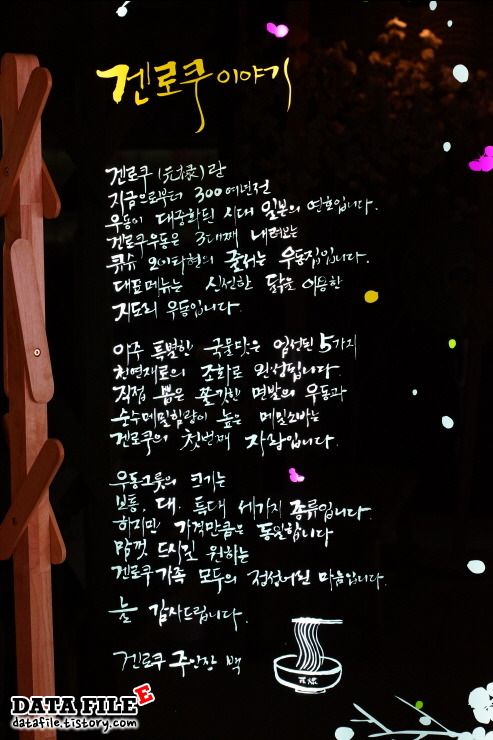 겐로쿠 이야기
겐로쿠 (元禄) 란
지금으로부터 300여년전
우동이 대중화된 시대 일본의 연호입니다.
겐로쿠우동은 3대째 내려오는
큐슈 오이타현의 줄서는 우동집입니다.
대표메뉴는 신선한 닭을 이용한
지도리 우동입니다.
아주 특별한 국물맛은 엄선된 5가지
천연재료의 조화로 완성됩니다.
직접 뽑은 쫄깃한 면발의 우동과
순수메밀함량이 높은 메밀소바는
겐로쿠의 첫번째 자랑입니다.
우동그릇의 크기는
보통, 대, 특대 세가지 종류입니다.
하지만 가격만큼은 동일합니다
맘껏 드시길 원하는
겐로쿠 가족 모두의 정성어린 마음입니다.
늘 감사드립니다.
겐로쿠 주인장 백
元禄
DATA FILE
datafile.tistory.com